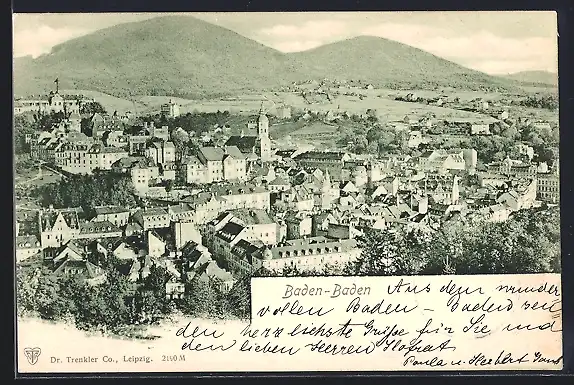 Baden-Baden
Aus dem wunder
vollen Baden - Baden sen
den herzlichste Grüße für Sie und
den lieben Herren Honorat
Paula u. Herbert
Dr. Trenkler Co., Leipzig. 2160 M